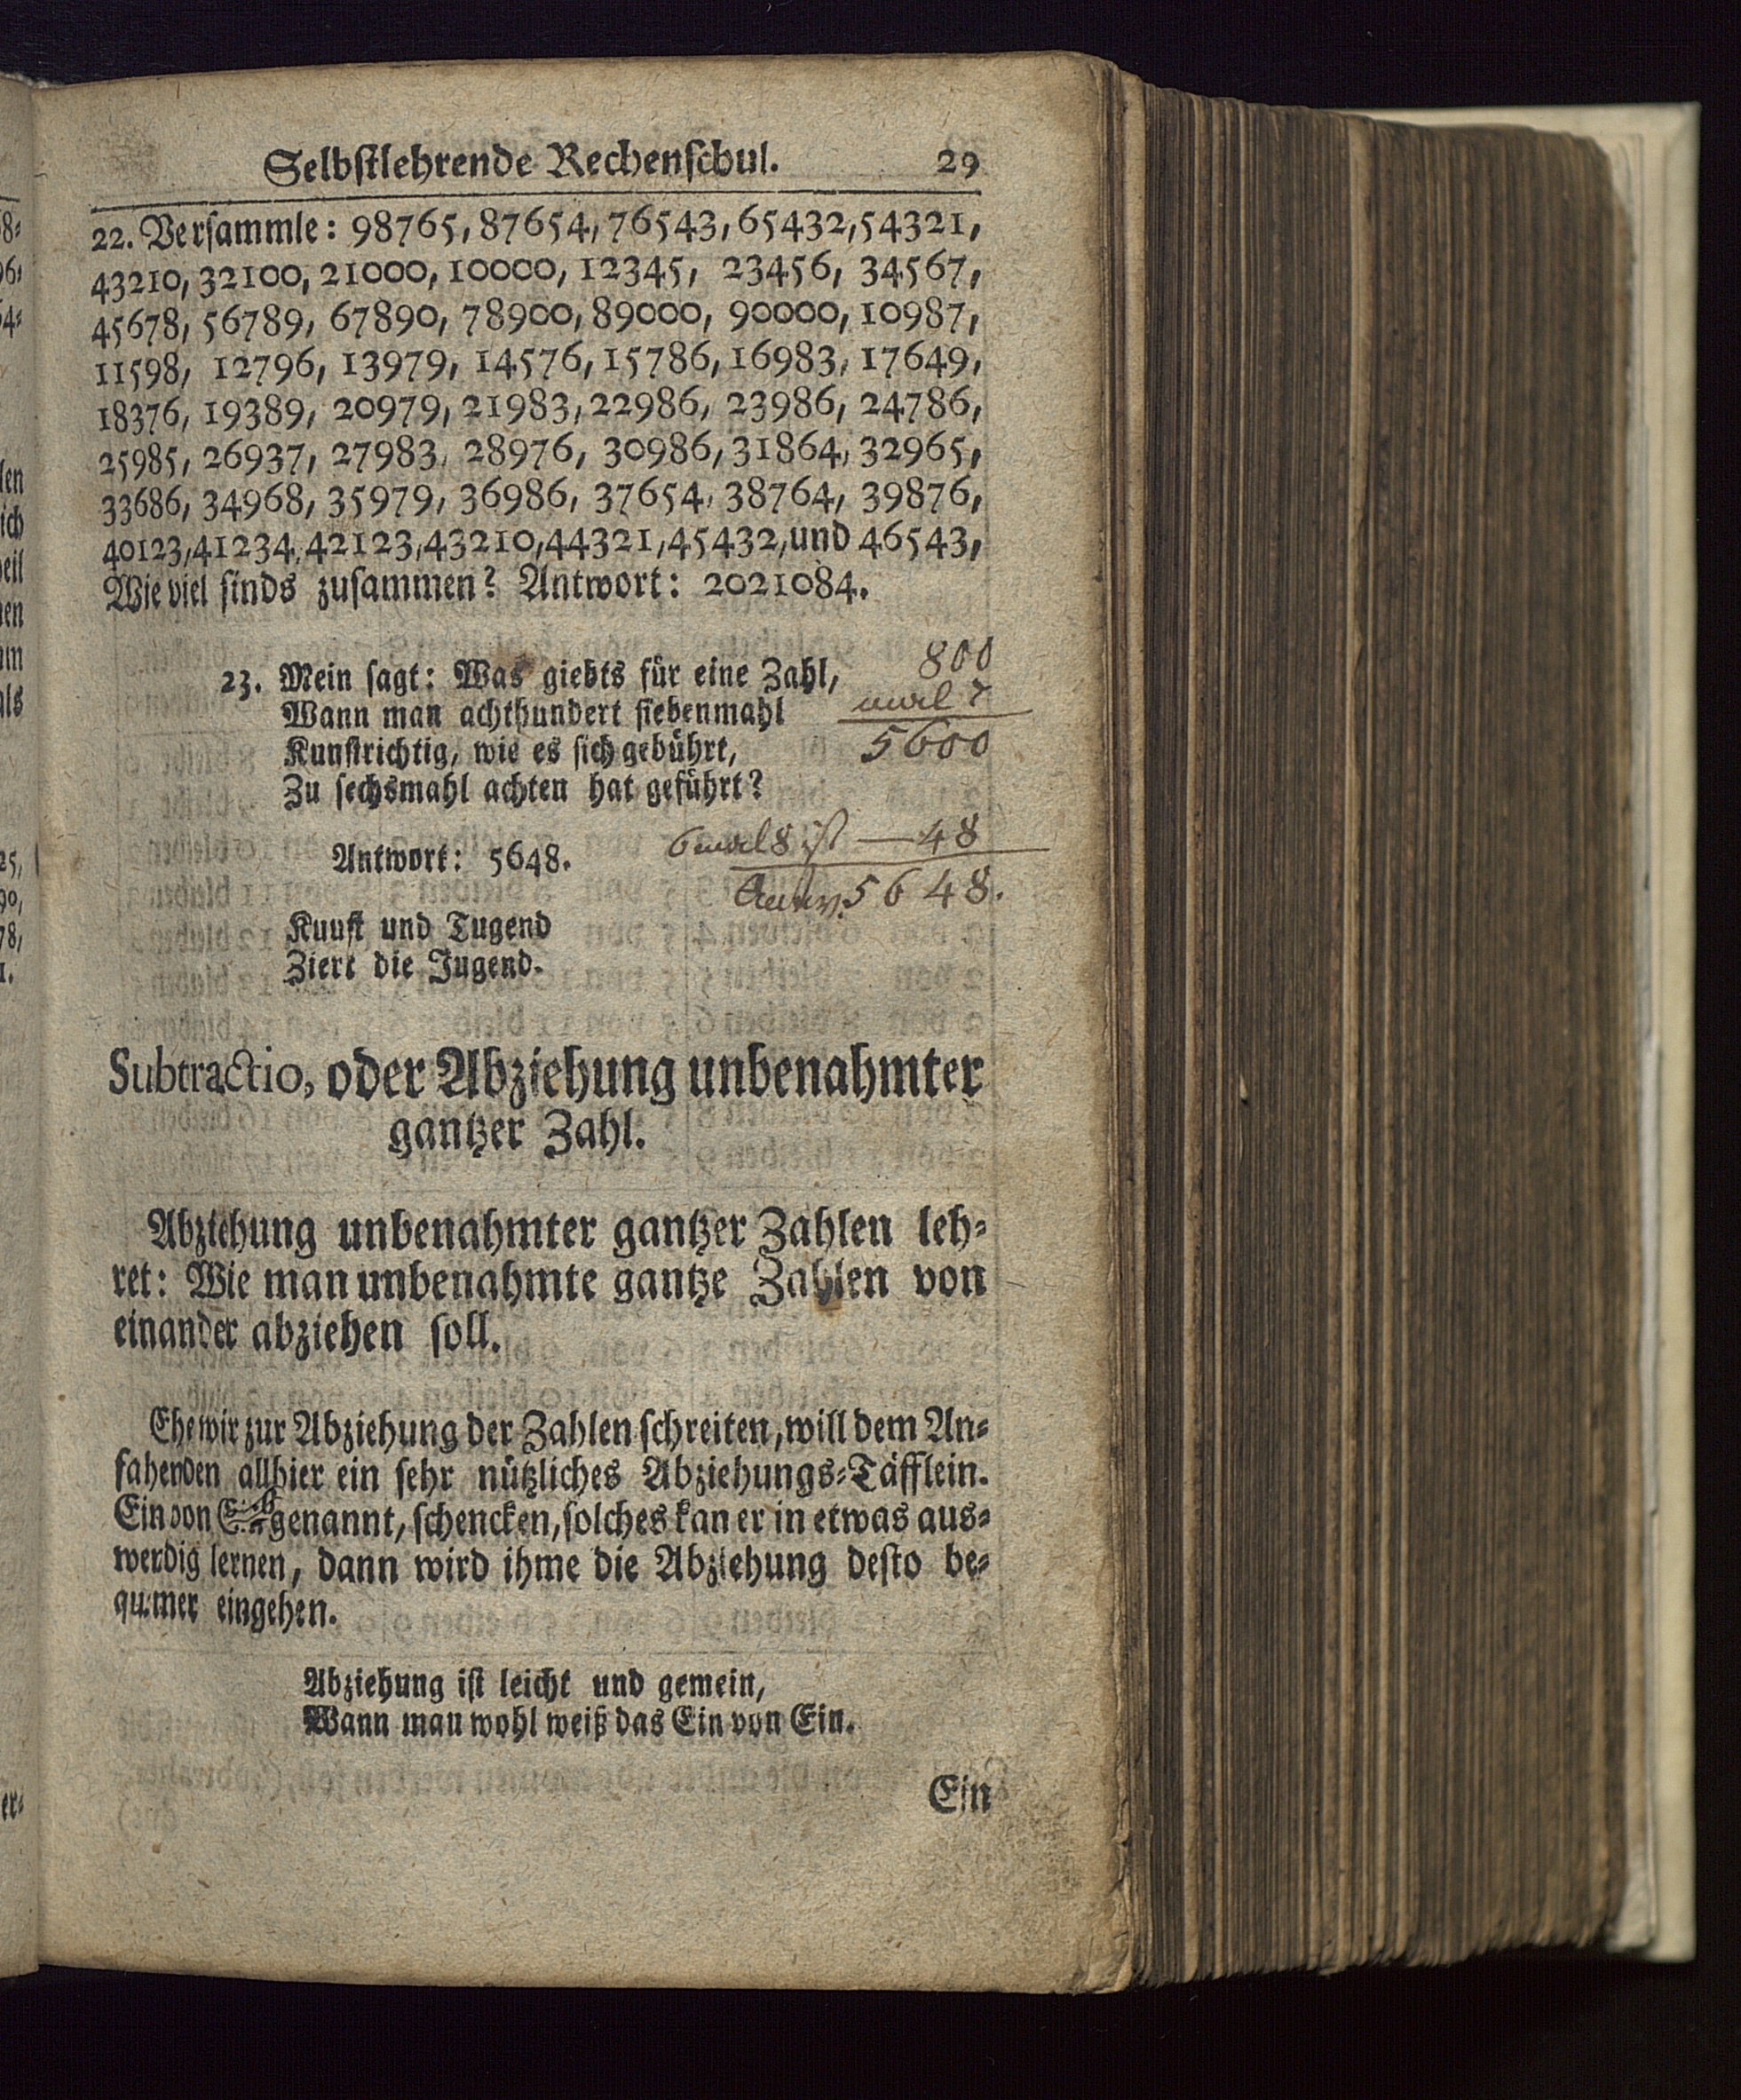 Selbstlehrende Rechenschul. 29
22. Versammle: 98765, 87654, 76543, 65432, 54321,
43210, 32100, 21000, 10000, 12345, 23456, 34567,
45678, 56789, 67890, 78900, 89000, 90000, 10987,
11598, 12796, 13979, 14576, 15786, 16983, 17649,
18376, 19389, 20979, 21983, 22986, 23986, 24786,
25985, 26937, 27983, 28976, 30986, 31864, 32965,
33686, 34968, 35979, 36986, 37654, 38764, 39876,
40123, 41234, 42123, 43210, 44321, 45432, und 46543,
Wie viel sinds zusammen? Antwort: 2021084.
23. Mein sagt: Was giebts für eine Zahl,
Wann man achthundert siebenmahl
Kunstrichtig, wie es sich gebührt,
Zu sechsmahl achten hat geführt?
800
mal 7
5600
6 mal 8 ist — 48
Antw. 5648.
Antwort: 5648.
Kuust und Tugend
Ziert die Jugend.
Subtractio, oder Abziehung unbenahmter
gantzer Zahl.
Abziehung unbenahmter gantzer Zahlen leh-
ret: Wie man unbenahmte gantze Zahlen von
einander abziehen soll.
Ehe wir zur Abziehung der Zahlen schreiten, will dem An-
fahenden allhier ein sehr nützliches Abziehungs-Täfflein.
Ein von genannt, schencken, solches kan er in etwas aus-
werdig lernen, dann wird ihme die Abziehung desto be-
qu.mer eingehen.
Abziehung ist leicht und gemein,
Wann man wohl weiß das Ein von Ein.
Ein